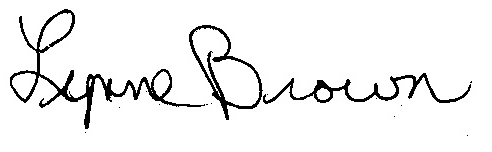 Lynne Brown